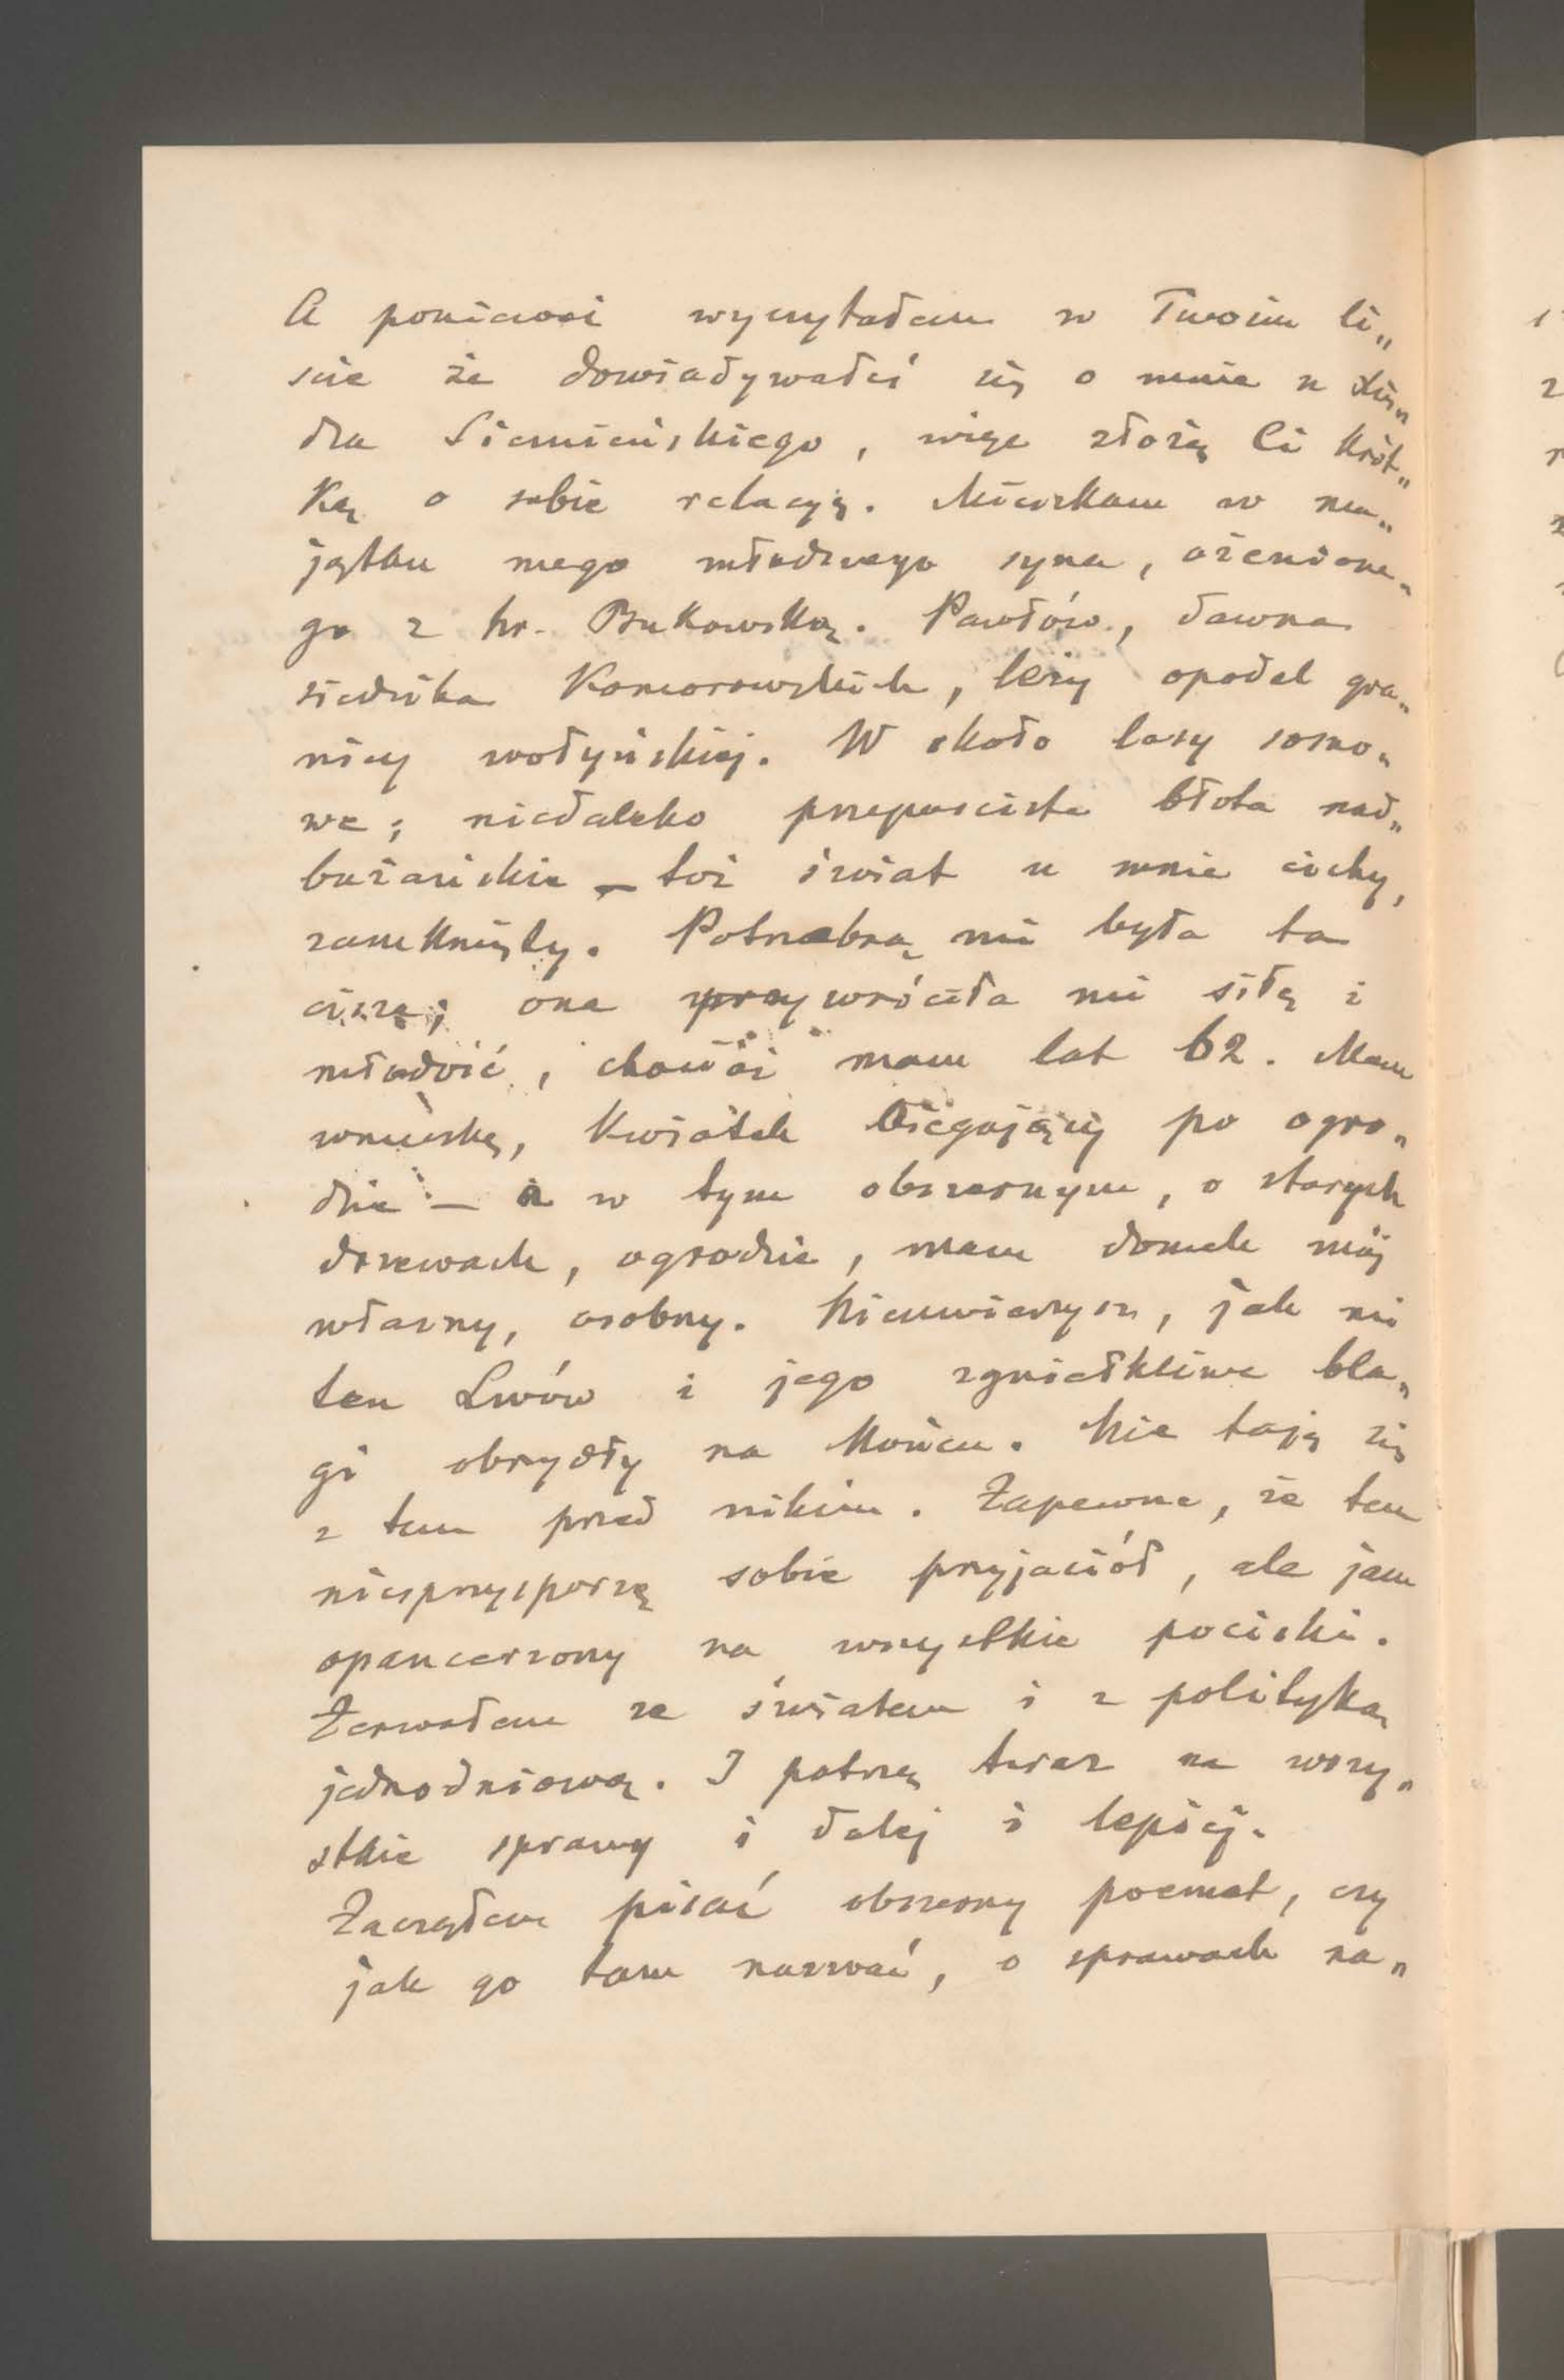 A ponieważ wyczytałem w Twoim li„
scie że dowiadywałeś się o mnie u
dra Siemieńskiego, więc złożę Ci krót„
ką o sobie relacyę. Mieszkam w ma„
jątku mego młodszego syna, ożenione„
go z hr. Bukowską. Pawłów, dawna
siedziba Komorowskich, leży opodal gra„
nicy wołyńskiej. W około lasy sosno„
we; niedaleko przepaściste błota nad„
bużańskie – toż świat u mnie cichy,
zamknięty. Potrzebną mi była ta
cisza; ona przywróciła mi siłę i
młodość, chociaż mam lat 62. Mam
wnuczkę, kwiatek biegający po ogro„
dzie – a w tym obszernym, o starych
drzewach, ogrodzie, mam domek mój
własny, osobny. Nieuwierzysz, jak mi
ten Lwów i jego zgiełkliwe bla„
gi obrzydły na końcu. Nie taję się
z tem przed nikim. Zapewne, że tem
nieprzysporzę sobie przyjaciół, ale jam
opancerzony na wszystkie pociski.
Zerwałem ze światem i z polityką
jednodniową. I patrzę teraz na wszy„
stkie sprawy i dalej i lepiej.
Zacząłem pisać obszerny poemat, czy
jak go tam nazwać, o sprawach na„